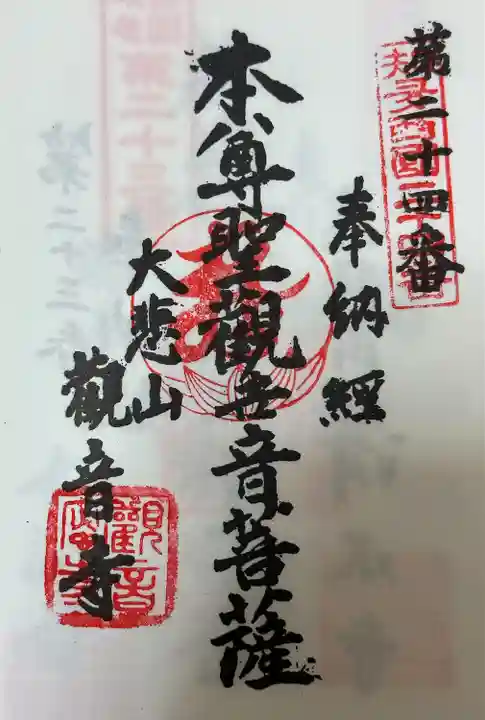 第二十四番
奉納經
本尊聖觀世音菩薩
大悲山
觀音寺
觀音